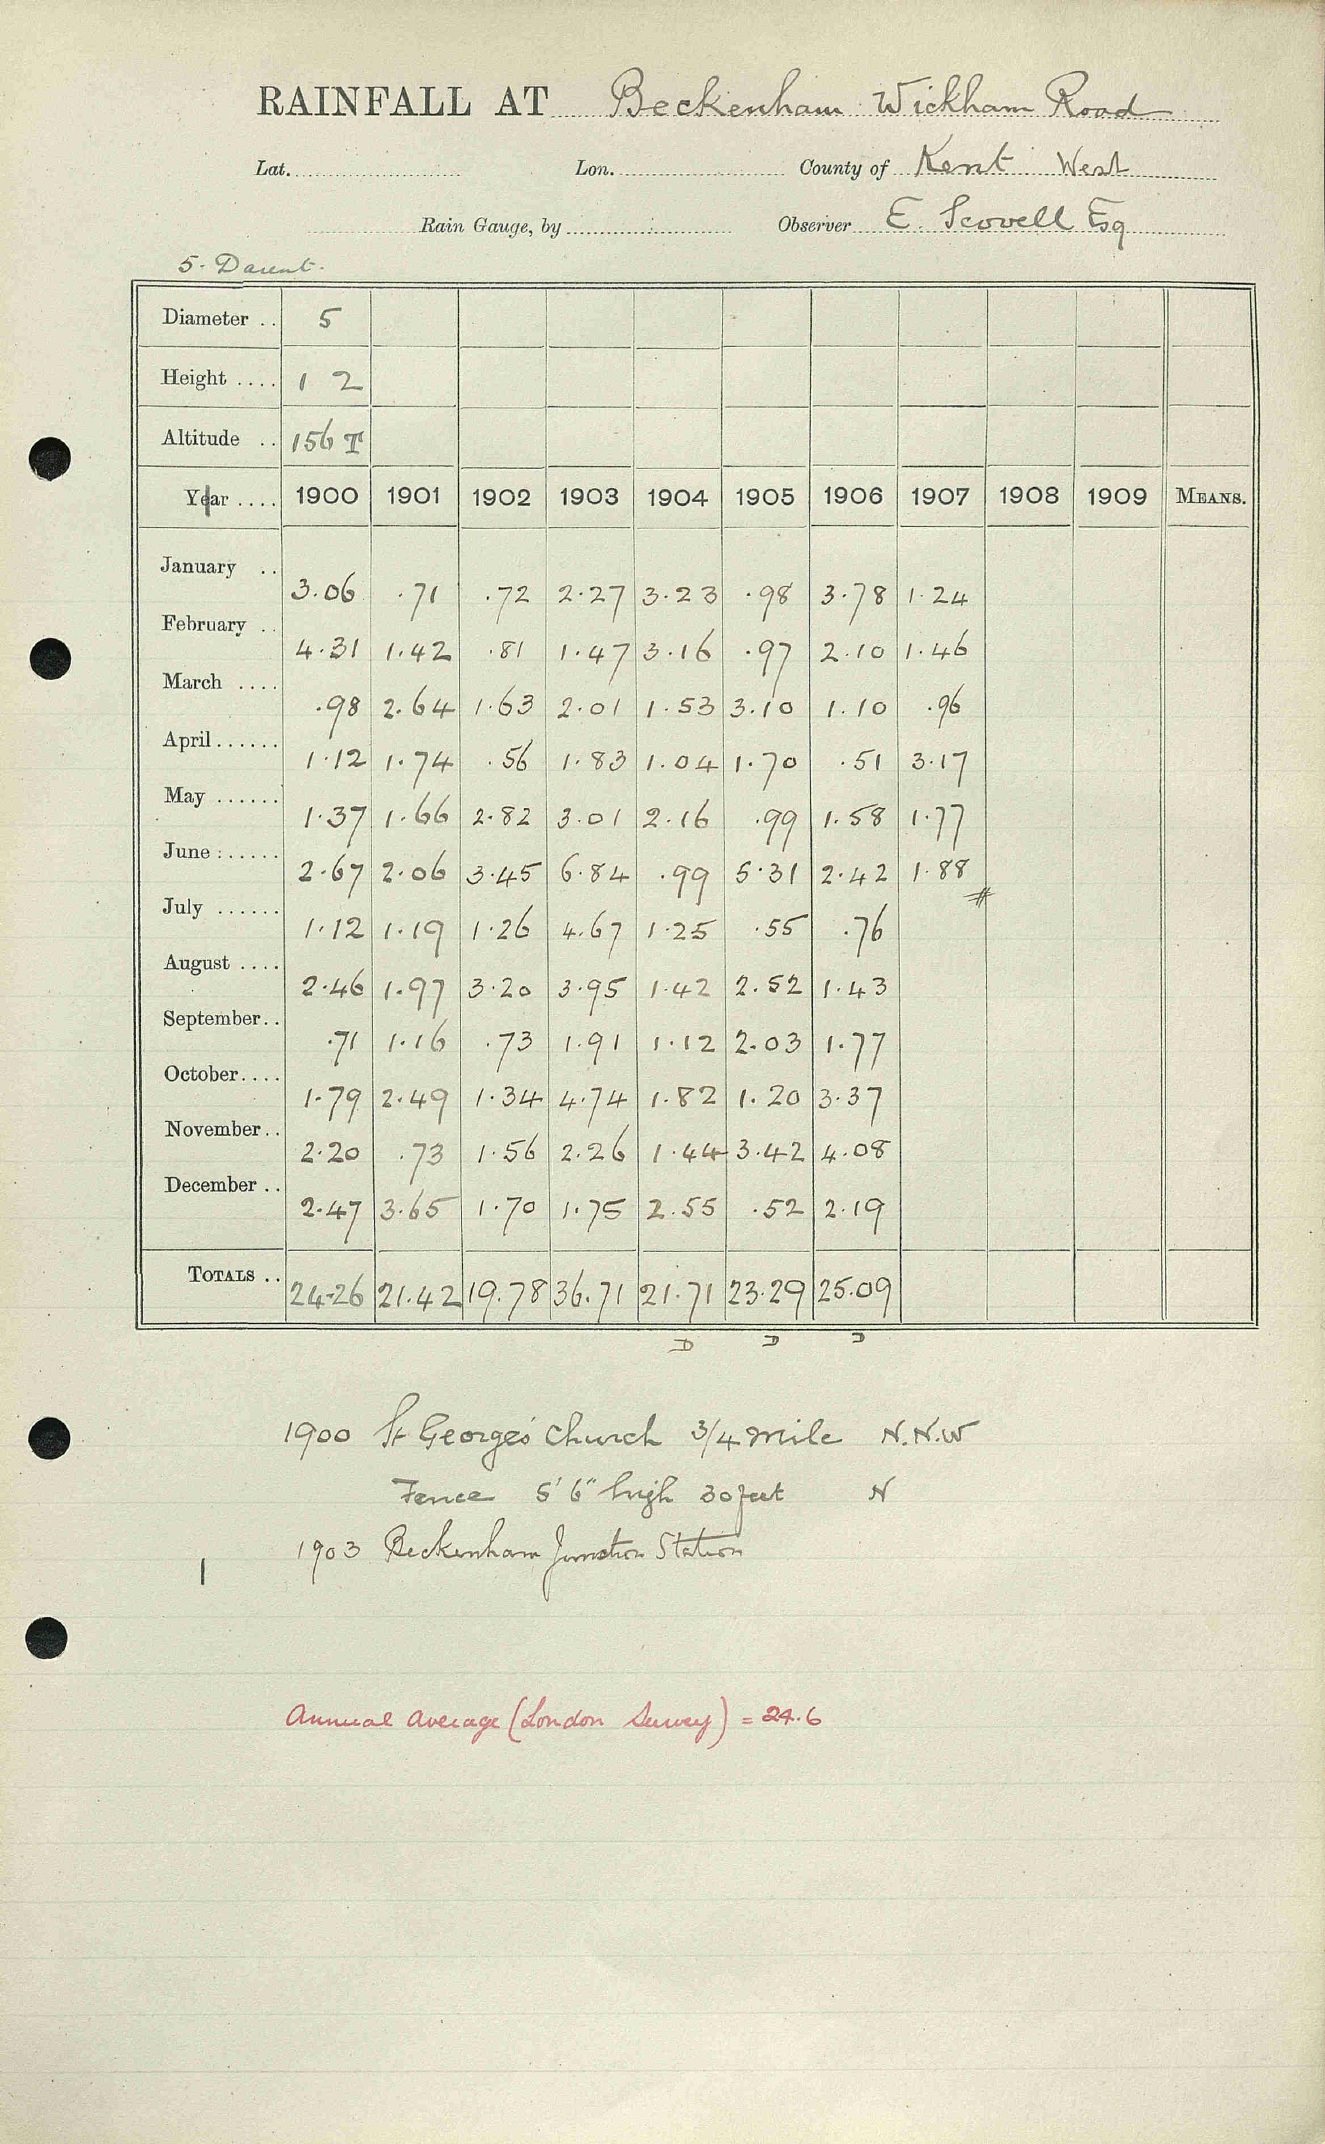 RAINFALL AT Beckenham Wickham Road
Lat. Lon. County of Kent West
Rain Gauge, by Observer E. Scovell Esq
5. Darent.
Diameter .. 5
Height .... 1 2
Altitude .. 156 T
Year .... 1900 1901 1902 1903 1904 1905 1906 1907 1908 1909 MEANS.
January .. 3.06 .71 .72 2.27 3.23 .98 3.78 1.24
February .. 4.31 1.42 .81 1.47 3.16 .97 2.10 1.46
March .... .98 2.64 1.63 2.01 1.53 3.10 1.10 .96
April ...... 1.12 1.74 .56 1.83 1.04 1.70 .51 3.17
May ...... 1.37 1.66 2.82 3.01 2.16 .99 1.58 1.77
June ...... 2.67 2.06 3.45 6.84 .99 5.31 2.42 1.88
July ...... 1.12 1.19 1.26 4.67 1.25 .55 .76 #
August .... 2.46 1.97 3.20 3.95 1.42 2.52 1.43
September .. .71 1.16 .73 1.91 1.12 2.03 1.77
October .... 1.79 2.49 1.34 4.74 1.82 1.20 3.37
November .. 2.20 .73 1.56 2.26 1.44 3.42 4.08
December .. 2.47 3.65 1.70 1.75 2.55 .52 2.19
TOTALS .. 24.26 21.42 19.78 36.71 21.71 23.29 25.09
D D D
1900 St George's Church 3/4 mile N.N.W
Fence 5' 6" high 30 feet N
1903 Beckenham Junction Station
Annual Average (London Survey) = 24.6